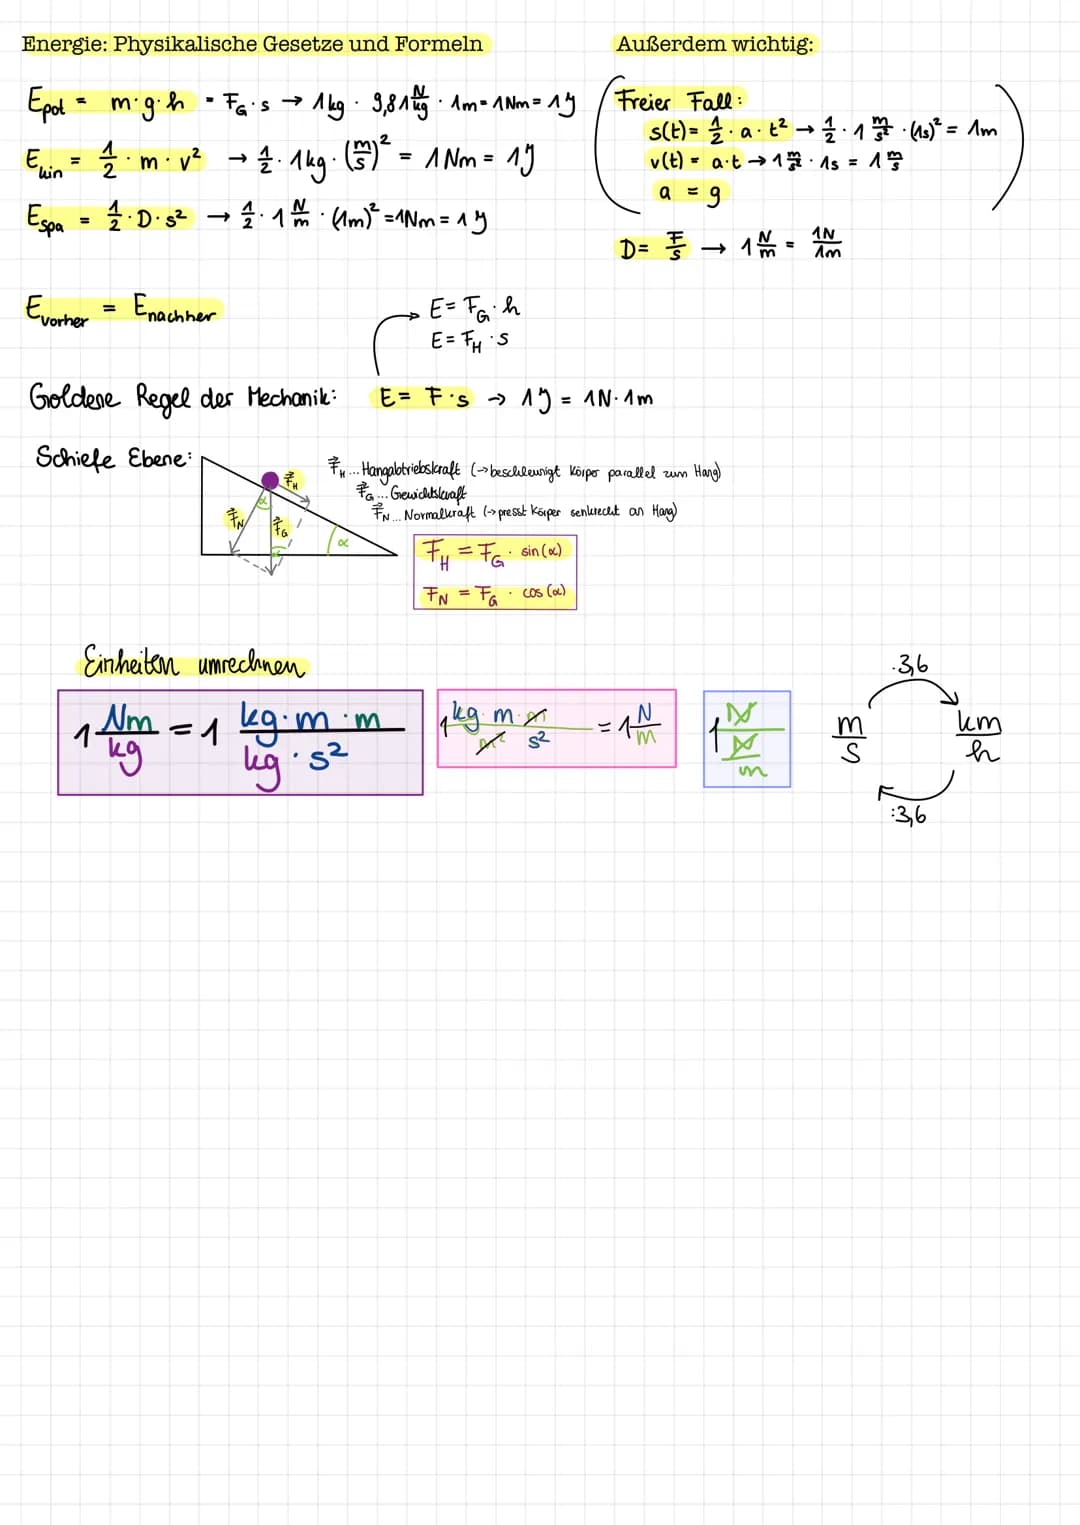 Energie: Physikalische Gesetze und Formeln
E_pot = m·g·h = F_G·s → 1kg · 9,81 N/kg · 1m = 1Nm = 1J
E_kin = 1/2 · m · v² → 1/2 · 1kg · (m/s)² = 1Nm = 1J
E_spa = 1/2 · D · s² → 1/2 · 1 N/m · (1m)² = 1Nm = 1J
Außerdem wichtig:
Freier Fall:
s(t) = 1/2 · a · t² → 1/2 · 1 m/s² · (1s)² = 1m
v(t) = a·t → 1 m/s² · 1s = 1 m/s
a = g
D = F/s → 1 N/m = 1N/1m
E_vorher = E_nachher
E = F_G · h
E = F_H · s
Goldene Regel der Mechanik: E = F·s → 1J = 1N·1m
Schiefe Ebene:
F_H
F_N
F_G
α
α
α
F_H ... Hangabtriebskraft (→ beschleunigt Körper parallel zum Hang)
F_G ... Gewichtskraft
F_N ... Normalkraft (→ presst Körper senkrecht an Hang)
F_H = F_G · sin(α)
F_N = F_G · cos(α)
Einheiten umrechnen
1 Nm/kg = 1 kg·m·m/kg·s²
1 kg·m·m/m² s² = 1 N/m
1 N/N/m
m/s
·3,6
km/h
:3,6